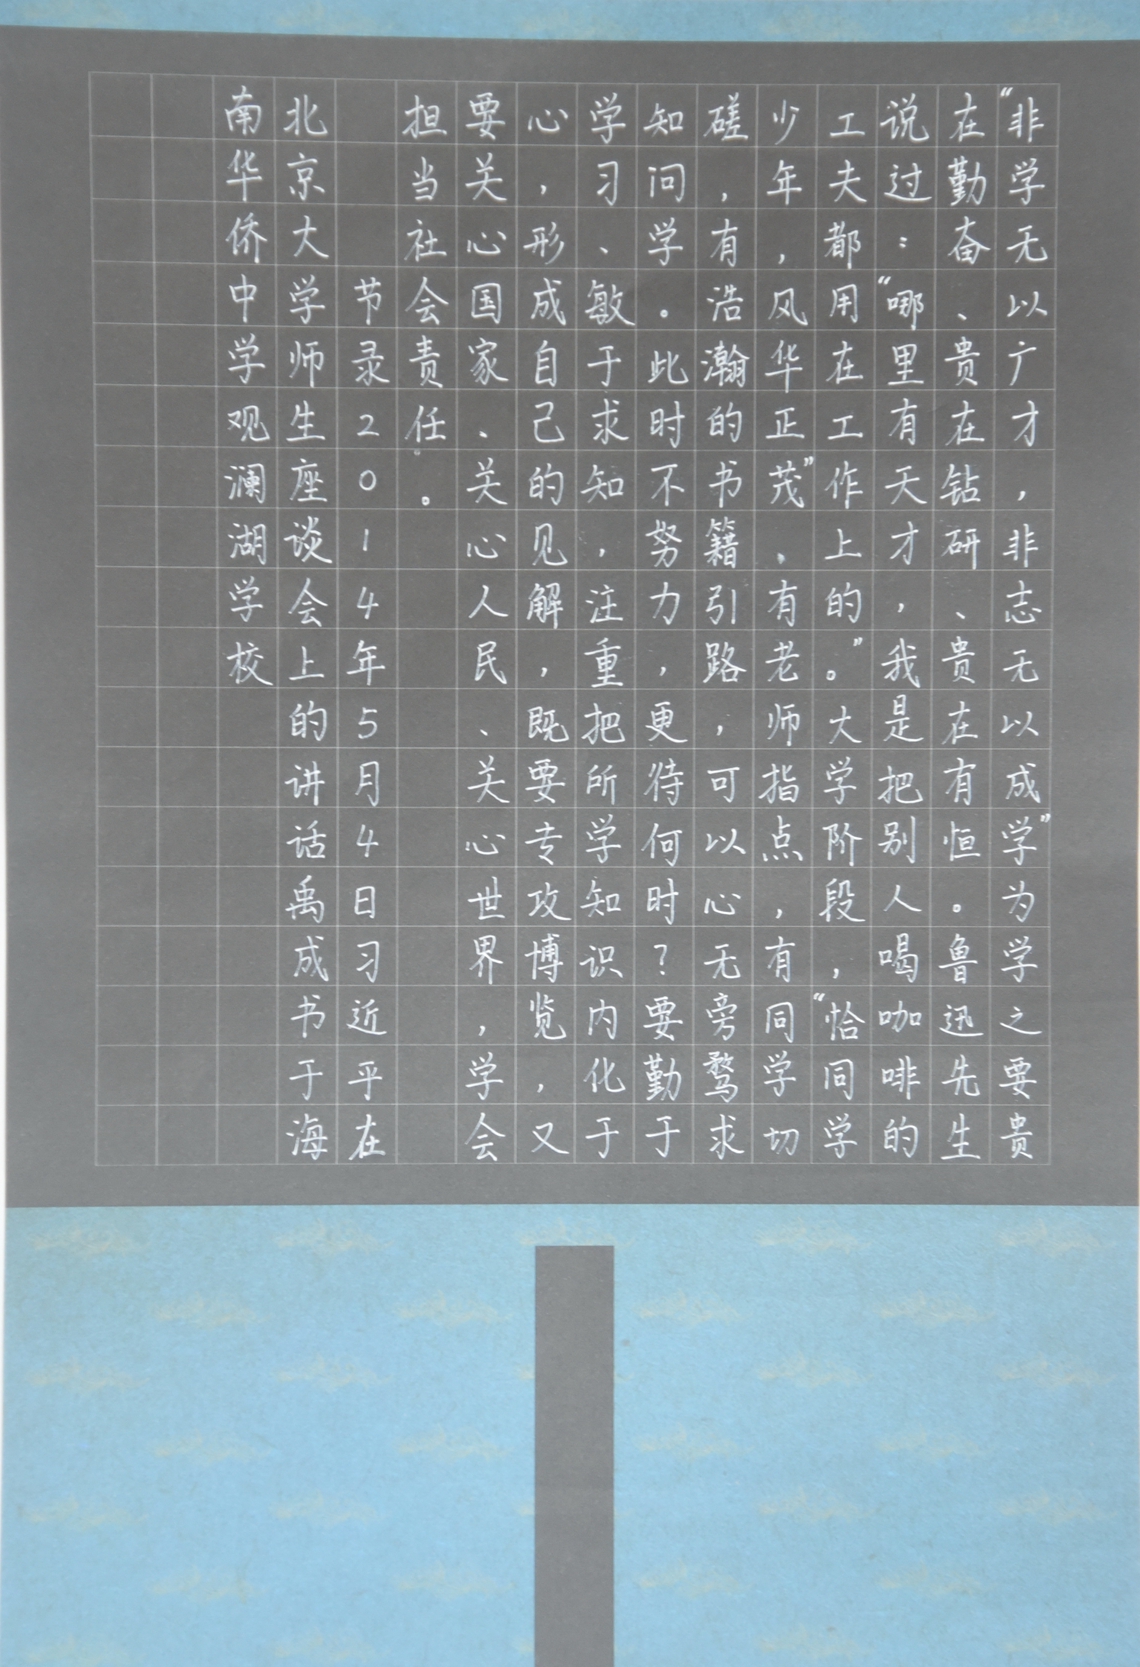 “非学无以广才，非志无以成学”为学之要贵
在勤奋、贵在钻研、贵在有恒。鲁迅先生
说过：“哪里有天才，我是把别人喝咖啡的
工夫都用在工作上的。”大学阶段，“恰同学
少年，风华正茂”，有老师指点，有同学切
磋，有浩瀚的书籍引路，可以心无旁骛求
知问学。此时不努力，更待何时？要勤于
学习、敏于求知，注重把所学知识内化于
心，形成自己的见解，既要专攻博览，又
要关心国家、关心人民、关心世界，学会
担当社会责任。
节录2014年5月4日习近平在
北京大学师生座谈会上的讲话禹成书于海
南华侨中学观澜湖学校